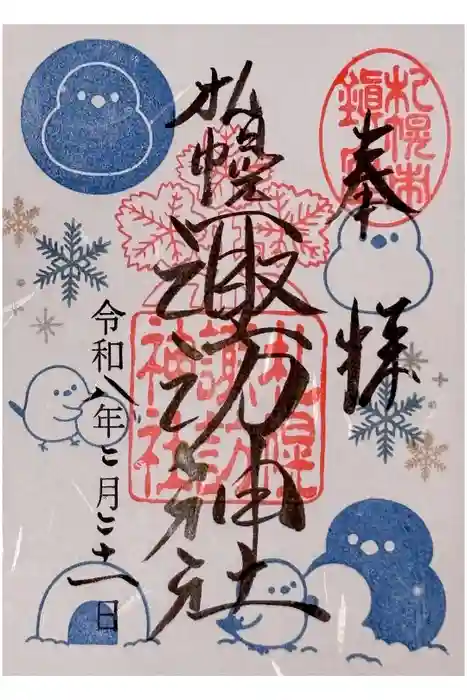 札幌
鎮
奉拝
札幌
諏訪神社
札幌
諏訪
神社
令和八年二月二十一日